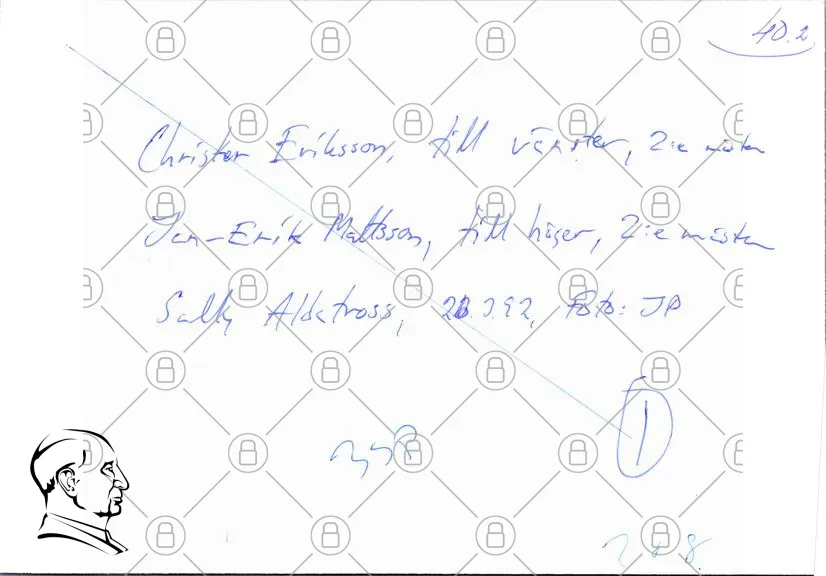 40.2
Christer Eriksson, till vänster, 2:e mästen
Jan-Erik Mattsson, till höger, 2:e mästen
Sally Albatross, 2.92, Foto: JP
1